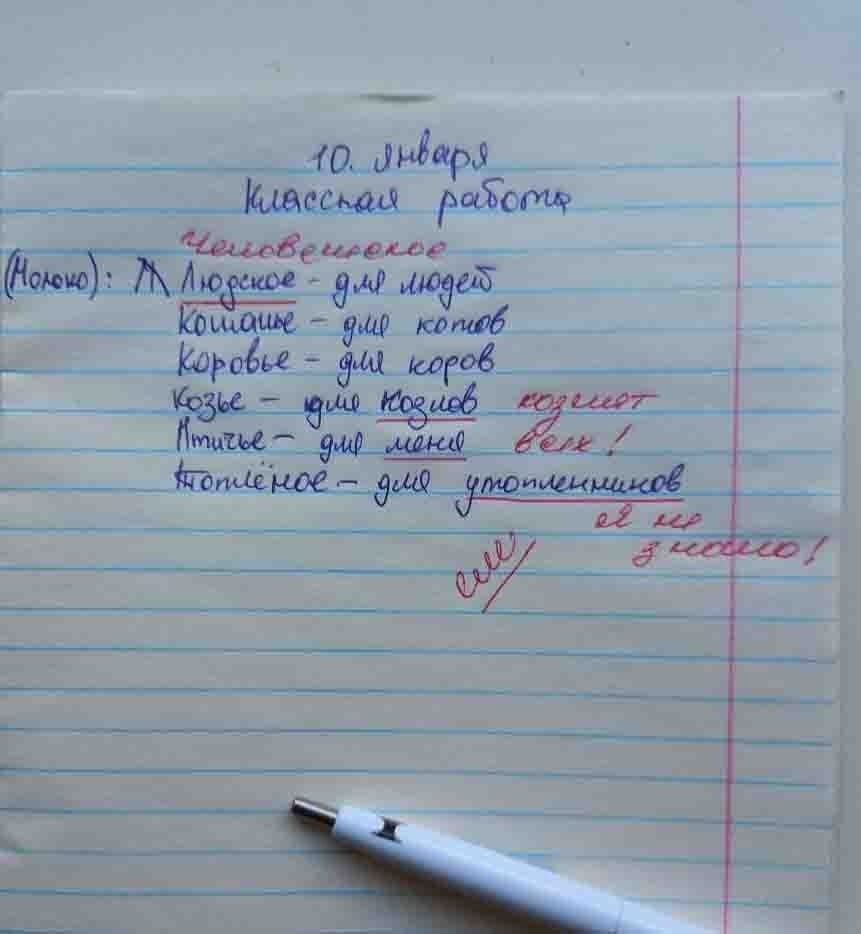 10. января
Классная работа
Человеческое
(Молоко): Людское - для людей
Кошачье - для котов
Коровье - для коров
Козье - для козлов козлят
Птичье - для меня всех!
Топлёное - для утопленников
Я не
знаю!
см